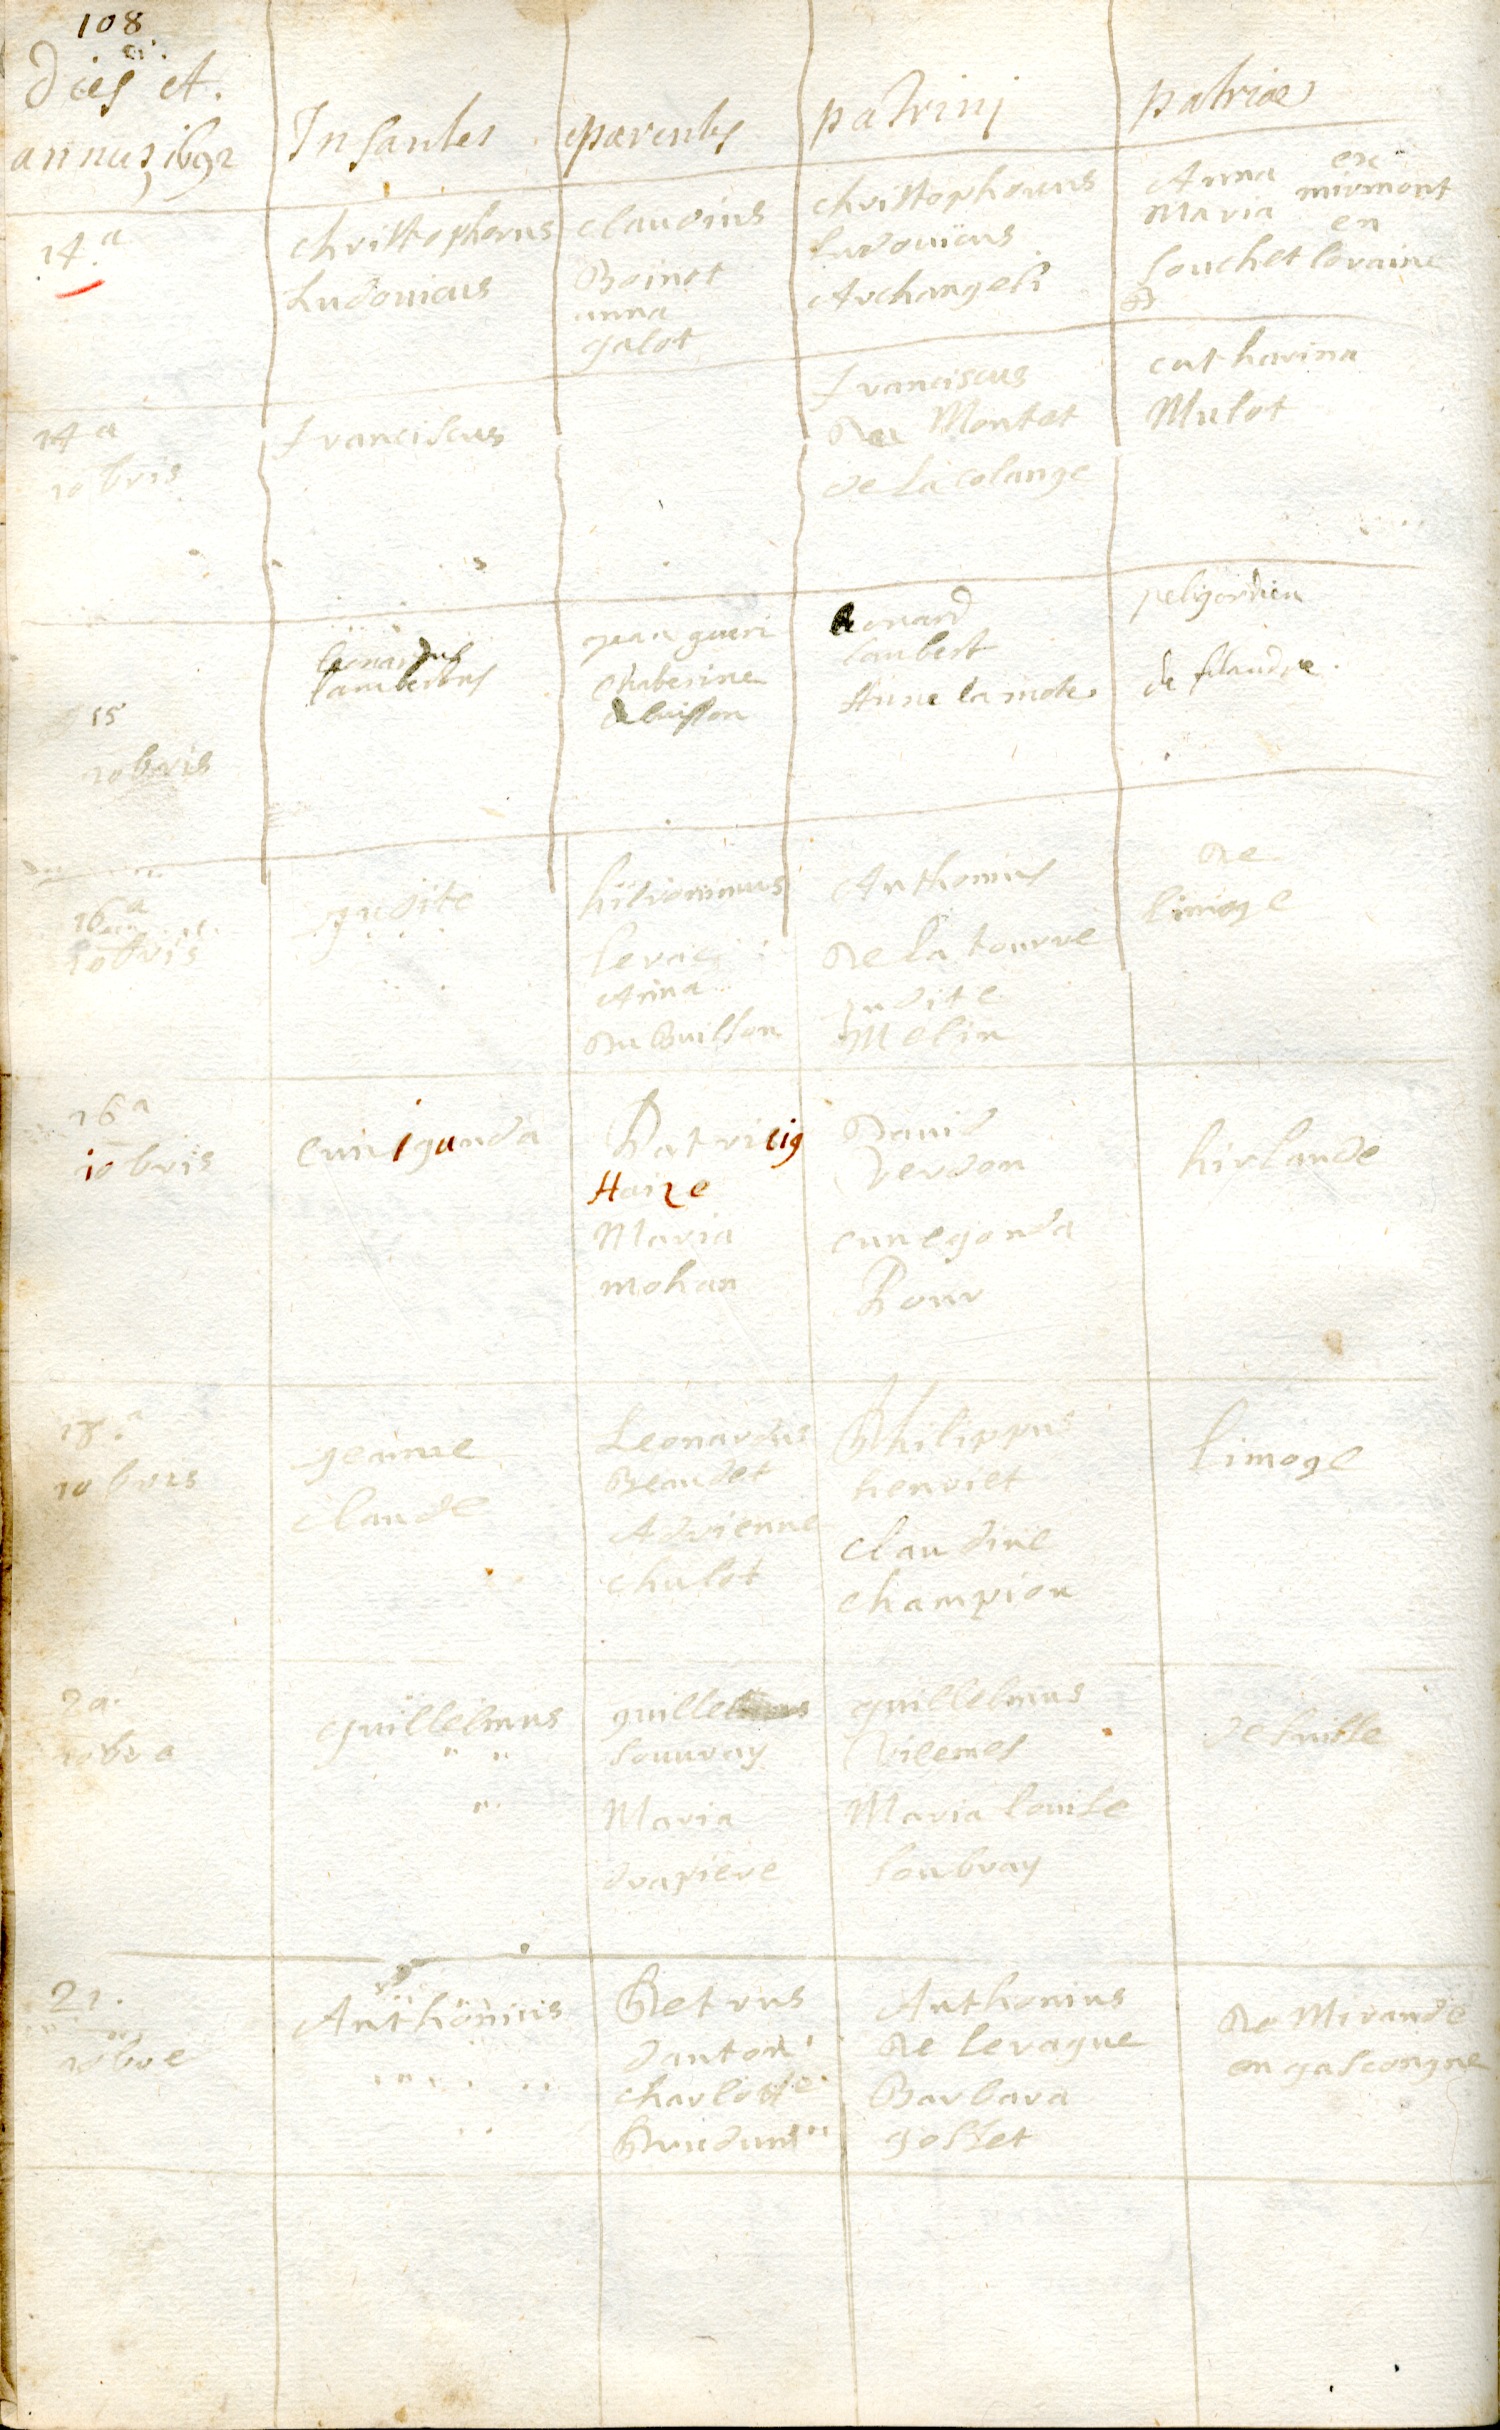 108
dies et
annus 1692
Infantes
parentes
patrinj
patriae
14.a
Christophorus
Ludouicus
claudius
Boinot
anna
galot
christophorus
Ludouicus
Archangeli
Anna
Maria
souchet
ex
mirmont
en
loraine
14 a
10 bris
franciscus
franciscus
de Montet
de la colange
catharina
Mulot
15
10 bris
leonardus
lambertus
jean gueri
Chaterine
leonard
lambert
Anne la mote
peligordieu
de flandre.
16 a
10 bris
judite
hieronimus
Anna
du Buisson
Anthonius
de la tourre
judite
Melin
de
limoge
16 a
10 bris
cunigunda
Patricig
Haize
Maria
mohan
Dauid
verdon
cunegonda
Rour
hirlande
18.a
10 bris
jeanne
claude
Leonardus
Beaudet
Adrienne
chulot
Philippus
henriet
claudine
champion
limoge
20.
guillelmus
guillelmus
souuray
Maria
drapiere
guillelmus
vilemes
Maria louise
soubray
de suisse
21.
10 bre
Anthonius
Petrus
danton
charlotte
Anthonius
de leragne
Barbara
gosset
de Mirande
en gascongne